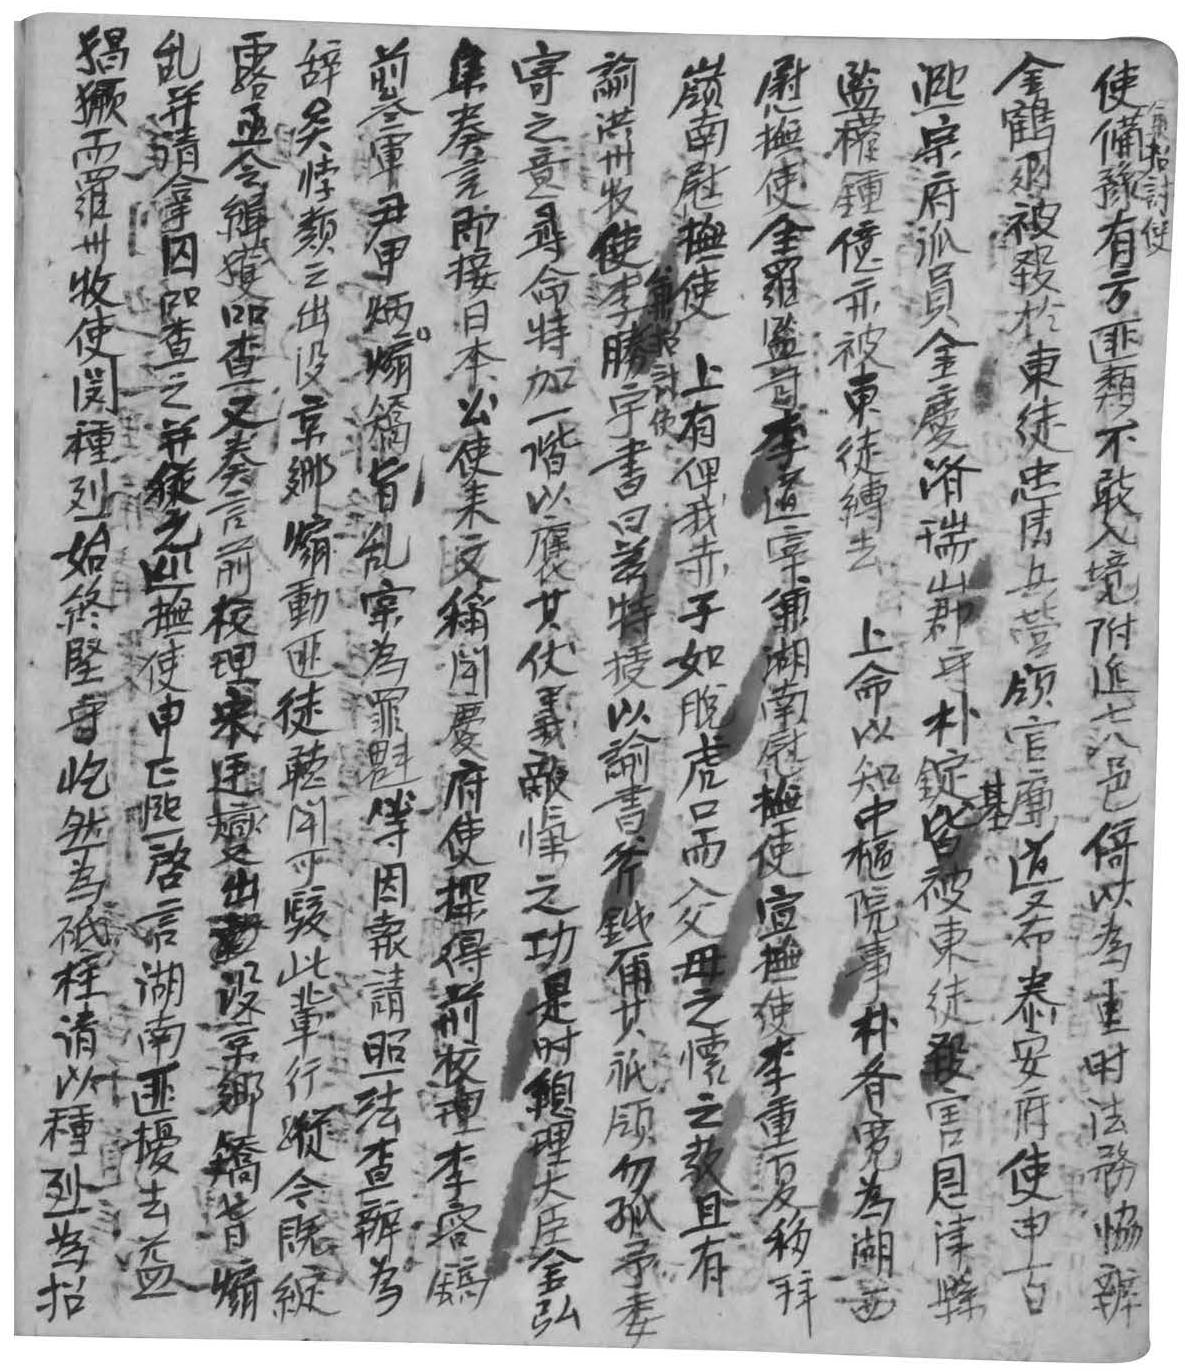 使備豫有方匪類不敢入境附近七八邑倚以為重時法務協辦
兼招討使
金鶴羽被殺於東徒忠淸兵營領官廉道希泰安府使申百
基
熙宗府派員金慶濟瑞山郡守朴錠皆被東徒殺害恩津縣
監權鍾億亦被東徒縛去 上命以知中樞院事朴齊寬為湖西
慰撫使全羅監司李道宰兼湖南慰撫使宣撫使李重夏移拜
嶺南慰撫使 上有俾我赤子如脫虎口而入父母之懷之教且有
兼招討使
諭洪州牧使李勝宇書曰玆特授以諭書斧鉞爾其祗領勿孤予委
寄之意尋命特加一階以褒其伏義敵愾之功是時總理大臣金弘
集奏言卽接日本公使來文稱聞慶府使探得前校理李容鎬
前參軍尹甲炳煽矯旨乱寀為罪魁等因報請照法查辦為
辭矣悖類之出沒京鄉煽動匪徒聽聞可駭此輩行蹤今既綻
露亟令緝獲品查又奏言前校理宋廷燮出沒京鄉矯旨煽
乱并請拿囚品查之并從之巡撫使申正熙啓言湖南匪擾去益
猖獗而羅州牧使閔種列始終堅守屹然為砥柱請以種列為招